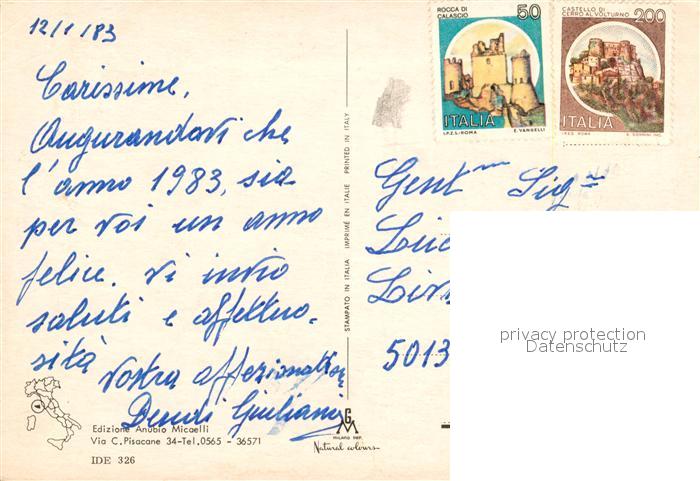 12/1/83
Carissime,
Augurandovi che
l'anno 1983, sia
per voi un anno
felice. Vi invio
saluti e affettuo-
sità
Vostra
Giuliani
Edizione Anubio Micaelli
Via C. Pisacane 34-Tel. 0565 - 36571
IDE 326
STAMPATO IN ITALIA IMPRIMÉ EN ITALIE PRINTED IN ITALY
GM
MILANO DEP.
Natural colours
ROCCA DI
CALASCIO
50
ITALIA
I.P.Z.S.-ROMA E. VANGELLI
CASTELLO DI
CERRO AL VOLTURNO
200
ITALIA
Gent.ma Sig.na
5013
privacy protection
Datenschutz